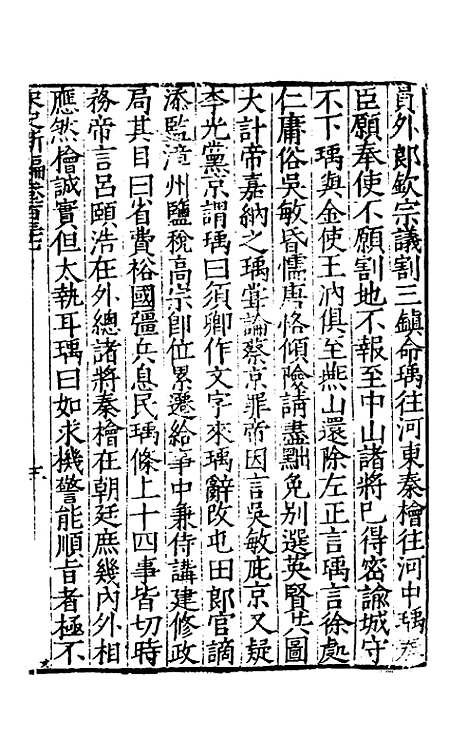 員外郎欽宗議割三鎮命瑀往河東秦檜往河中瑀奏
臣願奉使不願割地不報至中山諸將已得密諭城守
不下瑀與金使王汭俱至燕山還除左正言瑀言徐處
仁庸俗吳敏昏懦唐恪傾險請盡黜免别選英賢共圖
大計帝嘉納之瑀嘗論蔡京罪帝因言吳敏庇京又疑
李光黨京謂瑀曰須卿作文字來瑀辭改屯田郎官謫
添監漳州鹽稅高宗即位累遷給事中兼侍講建修政
局其目曰省費裕國彊兵息民瑀條上十四事皆切時
務帝言呂頤浩在外總諸將秦檜在朝廷庶幾內外相
應然檜誠實但太執耳瑀曰如求機警能順旨者極不
宋史新編卷百